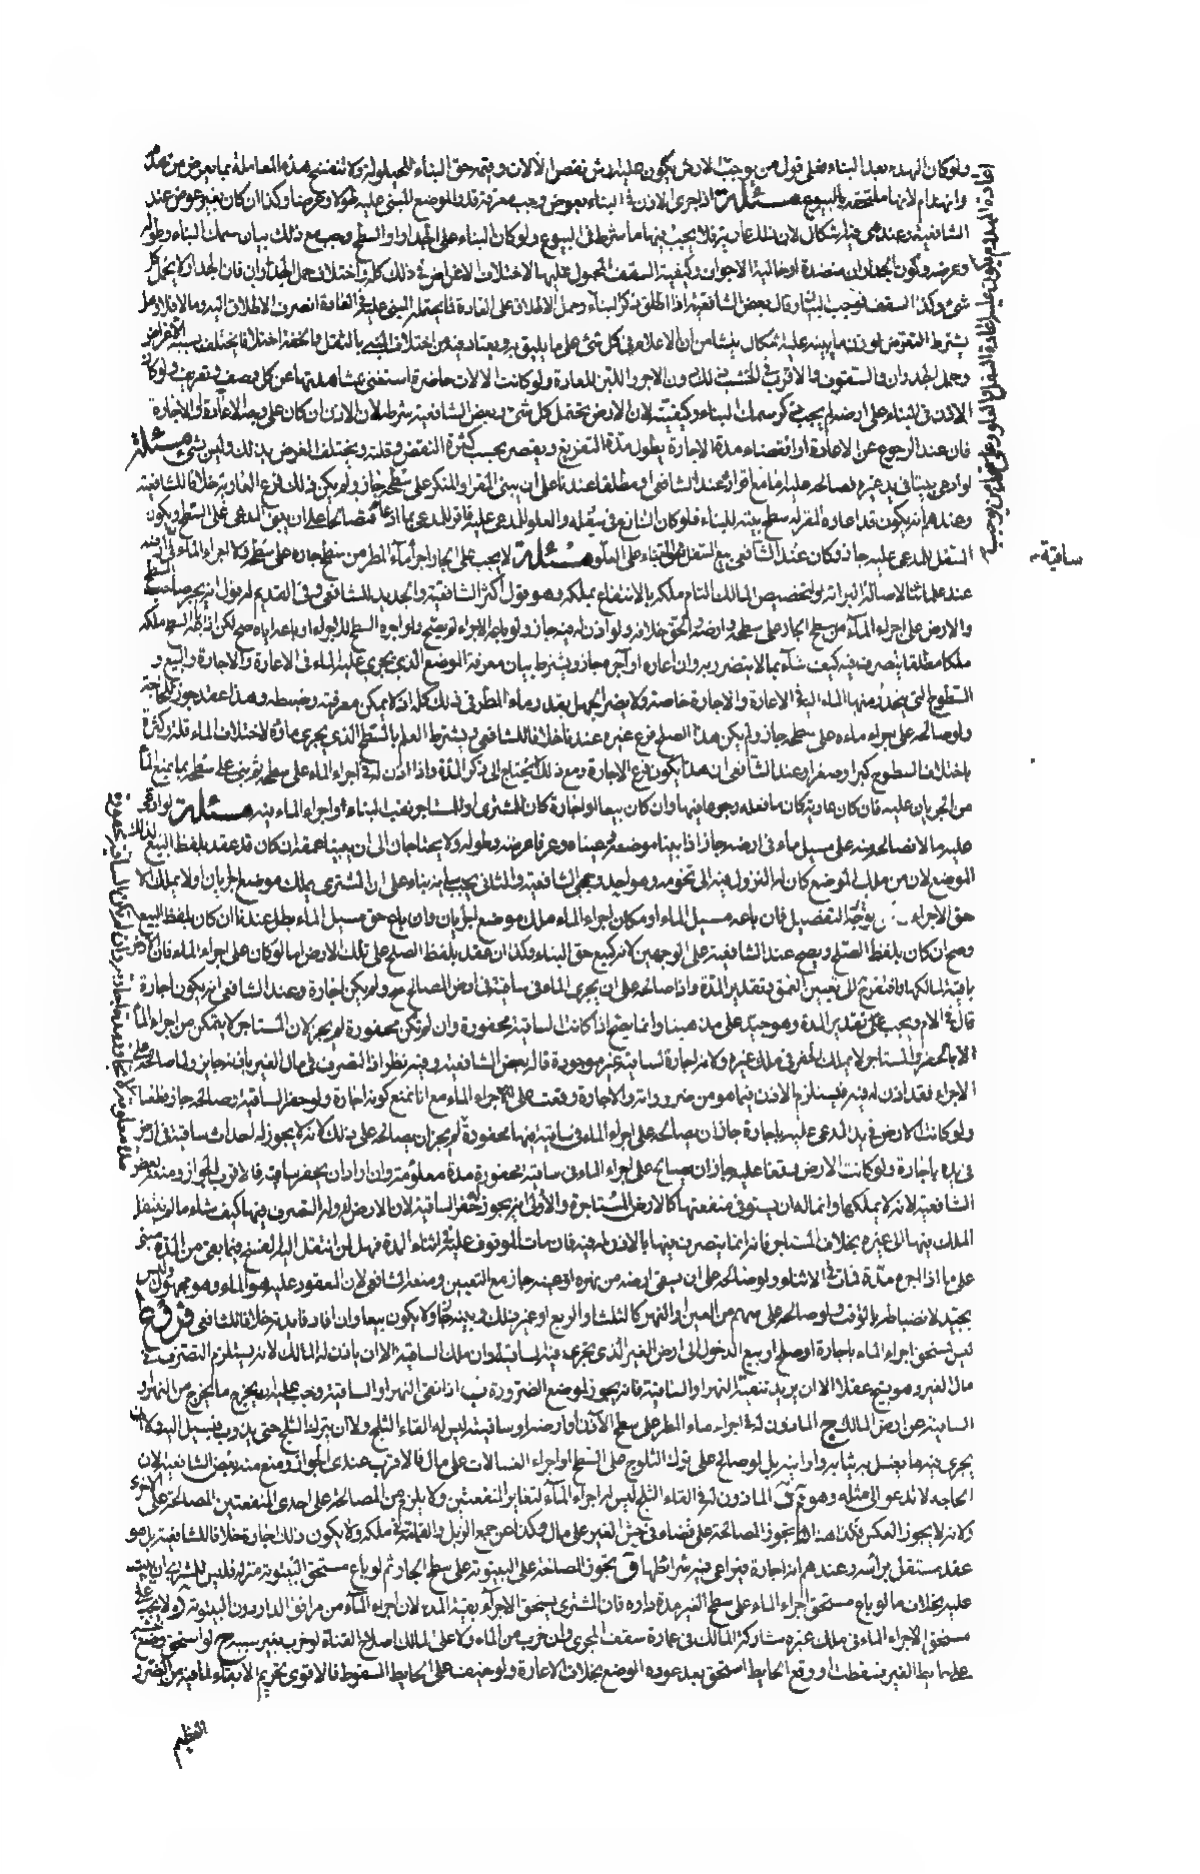 ولو كان الهدم بعد البناء فعلى قول من يوجب الارش يكون عليه ارش نقص الالات وقيمة حق البناء للحيلولة ولا تنفسخ هذه المعاملة بما يعرض من هدم
وانهدام لانها ملتحقة بالبيوع مسئلة اذا جرى الاذن فى البناء بعوض وجب معرفة قدر الموضع المبنى عليه طولا وعرضا وكذا ان كان بغير عوض عند
الشافعية وعندى فيه اشكال لان تلك عارية فلا يجب فيها ما شرط فى البيوع ولو كان البناء على الجدار او السطح وجب مع ذلك بيان سمك البناء وطوله
وعرضه وكون الجدران منضدة او خالية الاجواف وكيفية السقف المحمول عليها لاختلاف الاغراض فى ذلك كله واختلاف حمل الجدار فان الجدار لا يحمل كل
شئ وكذا السقف فيجب البناء وقال بعض الشافعية اذا اطلق ذكر البناء وحمل الاطلاق على العادة فيما يحتمله المبنى عليه فى العادة انصرف الاطلاق اليه وبالاول هل
يشترط التعرض لوزن ما يبنيه عليه اشكال ينشا من ان الاعلام فى كل شئ على ما يليق به ويعتاد فيه من اختلاف البناء بالثقل والخفة اختلافا يختلف بسببه الاغراض
وحمل الجدران فى السقوف والاقرب فى الخشب ذلك دون الاجر واللبن للعادة ولو كانت الالات حاضرة استغنى بمشاهدتها عن كل وصف وتعريف ولو كان
الاذن فى البناء على ارضه لم يجب ذكر سمك البناء وكيفيته لان الارض تحتمل كل شئ وبعض الشافعية شرطه لان الاذن ان كان على وجه الاعارة او الاجارة
فان عند الرجوع عن الاعارة او انقضاء مدة الاجارة يطول مدة التفريغ ويقصر بحسب كثرة النقض وقلته ويختلف الغرض بذلك وليس بشئ مسئلة
لو ادعى بيتا فى يد غيره فصالحه عليه اما مع اقراره عند الشافعى او مطلقا عندنا على ان يبنى المقر او المنكر على سطحه جاز ولم يكن ذلك فرع العارية خلافا للشافعية
وعندهم انه يكون قد اعاره المقر له سطح بيته للبناء فلو كان التنازع فى سفله والعلو للمدعى عليه فاقر للمدعى بما ادعاه فتصالحا على ان يبنى المدعى على السطح ويكون
السفل للمدعى عليه جاز وكان عند الشافعى بيع السفل بحق البناء على العلو مسئلة لا يجب على الجار اجراء ماء المطر من سطح جاره على سطحه ولا اجراء الماء فى ارضه
عند علمائنا لاصالة البراءة ولتخصيص المالك التام ملكه بالانتفاع بملكه وهو قول اكثر الشافعية والجديد للشافعى وفى القديم له قول انه يجبر صاحب السطح
والارض على اجراء الماء من سطح الجار على سطحه وارضه والحق خلافه ولو اذن له فيه جاز ولو باعه الاجراء لم يصح ولو اجره السطح لاجرائه او اعاره اياه صح لكن اذا باعه السطح ملكه
ملكا مطلقا يتصرف فيه كيف شاء بما لا يتضرر به وان اعاره او آجره جاز ويشترط بيان معرفة الموضع الذى يجرى عليه الماء فى الاعارة والاجارة والبيع و
السطوح التى ينحدر منها الماء اليه فى الاعارة والاجارة خاصة ولا يضر الجهل بقدر ماء المطر فى ذلك كله اذ لا يمكن معرفته وضبطه وهذا عقد جوز للحاجة
ولو صالحه على اجراء ماءه على سطحه جاز ولم يكن هذا الصلح فرع غيره عندنا خلافا للشافعى ويشترط العلم بالسطح الذى يجرى ماؤه لاختلاف الماء قلة وكثرة
باختلاف السطوح كبرا وصغرا وعند الشافعى ان هذا يكون فرع الاجارة ومع ذلك لا يحتاج الى ذكر المدة واذا اذن له فى اجراء الماء على سطحه ثم بنى على سطحه بما يمنع الماء
من الجريان عليه فان كان عارية كان ما فعله رجوعا فيها وان كان بيعا او اجارة كان للمشترى او للمستاجر نقب البناء او اجراء الماء فيه مسئلة لو ادعى
عليه مالا فصالحه منه على مسيل ماء فى ارضه جاز اذا بينا موضعه وعيناه وعرفا عرضه وطوله ولا يحتاجان الى ان يبينا عمقه ان كان قد عقد بلفظ البيع لذلك
الموضع لان من ملك الموضع كان له النزول فيه الى تخومه وهو احد وجهى الشافعية والثانى يجب بيانه بناء على ان المشترى يملك موضع الجريان او لا يملك الا
حق الاجراء توجه التفصيل فان باعه مسيل الماء او مكان اجراء الماء ملك موضع الجريان وان باع حق مسيل الماء بطل عندنا ان كان بلفظ البيع
وصح ان كان بلفظ الصلح ويصح عند الشافعية على الوجهين كانه كبيع حق البناء وكذا ان عقد بلفظ الصلح على تلك الارض اما لو كان على اجراء الماء فان الارض
باقية لمالكها وافتقر الى تعيين العمق وتقدير المدة واذا صالحه على ان يجرى الماء فى ساقية فى ارض المصالح صح ولم يكن اجارة وعند الشافعى انه يكون اجارة
قال فى الام ويجب على تقدير المدة وهو جيد على مذهبنا وانما يصح اذا كانت الساقية محفورة وان لم تكن محفورة لم يجز لان المستاجر لا يتمكن من اجراء الماء
الا بالحفر والمستاجر لا يملك الحفر فى ملك غيره ولانه اجارة لساقية غير موجودة قاله بعض الشافعية وفيه نظر اذ التصرف فى مال الغير باذنه جايز ولما صالحه على
الاجراء فقد اذن له فيه فيستلزم الاذن فيما هو من ضروراته والاجارة وقعت على اجراء الماء مع انا نمنع كونه اجارة ولو حفر الساقية وصالحه جاز قطعا
ولو كانت الارض فى يد المدعى عليه باجارة جاز ان يصالحه على اجراء الماء فى ساقية فيها محفورة ولم يجز ان يصالحه على ذلك لانه لا يجوز له احداث ساقية فى ارض
فى يده باجارة ولو كانت الارض وقفا عليه جاز ان يصالح على اجراء الماء فى ساقية محفورة مدة معلومة وان اراد ان يحفر ساقية فالاقرب الجواز ومنعه بعض
الشافعية لانه لا يملكها وانما له ان يستوفى منفعتها كالارض المستاجرة والاولى انه يجوز له حفر الساقية لان الارض له وله التصرف فيها كيف شاء ما لم ينتقل
الملك فيها الى غيره بخلاف المستاجر فانه انما يتصرف فيها بالاذن له فيه فان مات الموقوف عليه فى اثناء المدة فهل لمن انتقل اليه الفسخ فيما بقى من المدة مبنى
على ما اذا اجره مدة فمات فى الاثناء ولو صالحه على ان يسقى ارضه من نهره او عينه جاز مع التعيين ومنعه الشافعى لان المعقود عليه هو الماء وهو مجهول وليس
بجيد لانضباطه بالوقت ولو صالحه على سهم من العين او النهر كالثلث او الربع او غير ذلك وبينه جاز ولا يكون بيعا وان افاد فايدته خلافا للشافعى فروع ا
ليس لمستحق اجراء الماء باجارة او صلح او بيع الدخول الى ارض الغير الذى تجرى فيه الساقية وان ملك الساقية الا ان ياذن له المالك لانه يستلزم التصرف فى
مال الغير وهو قبيح عقلا الا ان يريد تنقية النهر او الساقية فانه يجوز لموضع الضرورة ب اذا نقى النهر او الساقية وجب عليه ان يخرج ما يخرج من النهر او
الساقية عن ارض المالك ج الماذون له فى اجراء ماء المطر على سطح الاذن او ارضه او ساقيته ليس له القاء الثلج ولا ان يترك الثلج حتى يذوب فيسيل اليه ولا ان
يجرى فيها ما يغسل به ثيابه واوانيه بل لو صالح على ترك الثلوج على السطح او اجراء الغسالات على مال فالاقرب عندى الجواز ومنع منه بعض الشافعية لان
الحاجة لا تدعو الى مثله وهو ممنوع الماذون له فى القاء الثلج ليس له اجراء الماء لتغاير المنفعتين ولا يلزم من المصالحة على احدى المنفعتين المصالحة على الاخرى
ولانه لا يجوز العكس فكذا هذا يجوز المصالحة على قضاء فى حش الغير على مال وكذا عن جمع الزبل والقمامة فى ملكه ولا يكون ذلك اجارة خلافا للشافعية بل هو
عقد مستقل براسه وعندهم انه اجارة فيراعى فيه شرائطها و يجوز المصالحة على البيتوتة على سطح الجار ثم لو باع مستحق البيتوتة منزله فليس للمشترى ان يبيت
عليه بخلاف ما لو باع مستحق اجراء الماء على سطح الغير مدة داره فان المشترى يستحق الاجراء بقية المدة لان اجراء الماء من مرافق الدار دون البيتوتة ز لا يجب على
مستحق الاجراء الماء فى ملك غيره مشاركة المالك فى عمارة سقف المجرى وان خرب من الماء ولا على المالك اصلاح القناة لو خرب بغير سببه ح لو استحق وضع خشبه
على حايط الغير فسقطت او وقع الحايط استحق بعد عوده الوضع بخلاف الاعارة ولو خيف على الحايط السقوط فالاقوى تحريم الابقاء لما فيه من الضرر
العظيم
ساقية